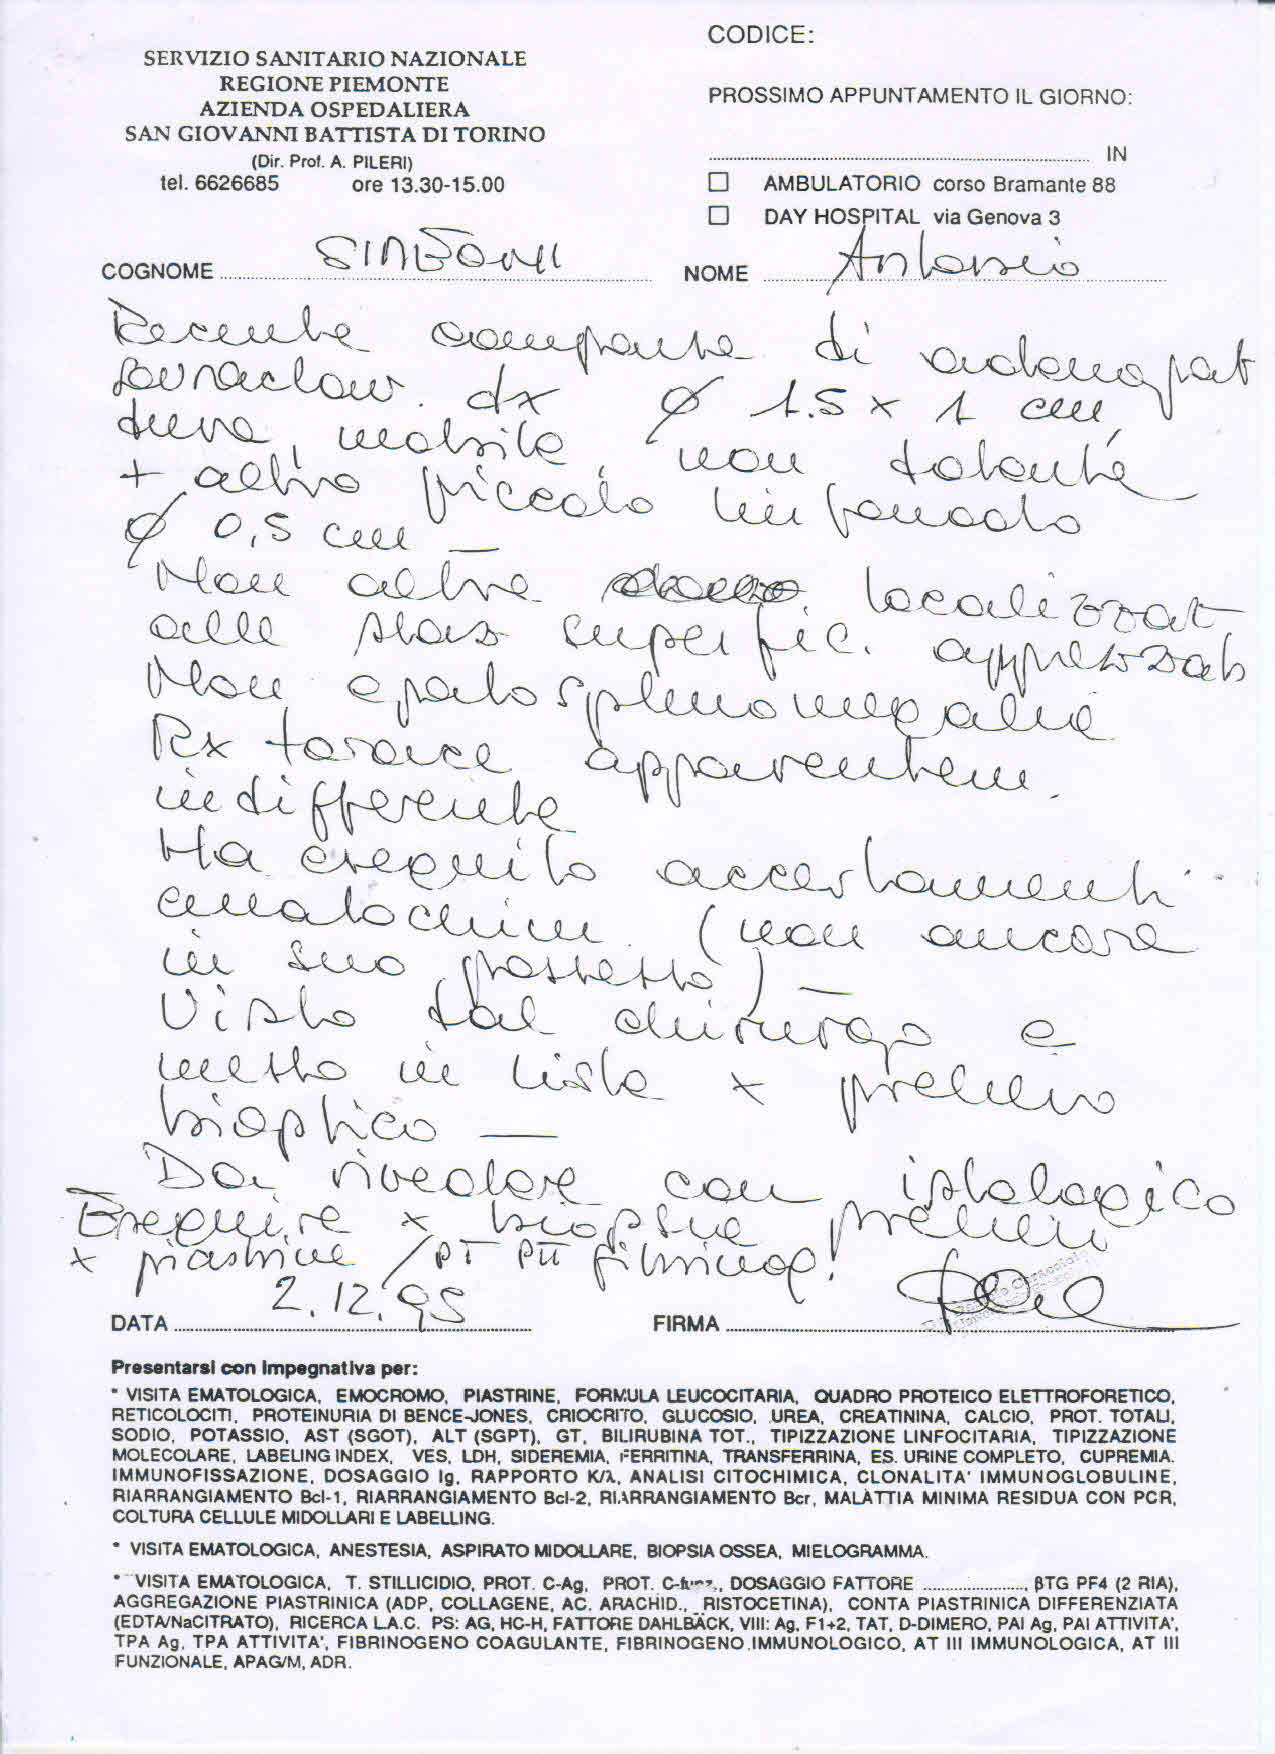 SERVIZIO SANITARIO NAZIONALE
REGIONE PIEMONTE
AZIENDA OSPEDALIERA
SAN GIOVANNI BATTISTA DI TORINO
(Dir. Prof. A. PILERI)
tel. 6626685 ore 13.30-15.00
CODICE:
PROSSIMO APPUNTAMENTO IL GIORNO:
IN
AMBULATORIO corso Bramante 88
DAY HOSPITAL via Genova 3
COGNOME
NOME Antonio
Recente comparsa di adenopat
sovraclav. dx ø 1.5 x 1 cm,
dura, mobile, non dolente
+ altro piccolo linfonodo
ø 0,5 cm —
Non altre localizzat
alle staz superfic. apprezzab
Non epatosplenomegalia
Rx torace apparentem.
indifferente
Ha eseguito accertamenti
ematochim. (non ancora
in suo possesso) —
Visto dal chirurgo e
messo in lista x prelievo
bioptico —
Da rivedere con istologico
Eseguire x biopsia prelievi
x piastrine / PT PTT fibrinog!
DATA 2.12.95
FIRMA
Presentarsi con impegnativa per:
* VISITA EMATOLOGICA, EMOCROMO, PIASTRINE, FORMULA LEUCOCITARIA, QUADRO PROTEICO ELETTROFORETICO,
RETICOLOCITI, PROTEINURIA DI BENCE-JONES, CRIOCRITO, GLUCOSIO, UREA, CREATININA, CALCIO, PROT. TOTALI,
SODIO, POTASSIO, AST (SGOT), ALT (SGPT), GT, BILIRUBINA TOT., TIPIZZAZIONE LINFOCITARIA, TIPIZZAZIONE
MOLECOLARE, LABELING INDEX, VES, LDH, SIDEREMIA, FERRITINA, TRANSFERRINA, ES. URINE COMPLETO, CUPREMIA.
IMMUNOFISSAZIONE, DOSAGGIO Ig, RAPPORTO K/λ, ANALISI CITOCHIMICA, CLONALITA' IMMUNOGLOBULINE,
RIARRANGIAMENTO Bcl-1, RIARRANGIAMENTO Bcl-2, RIARRANGIAMENTO Bcr, MALATTIA MINIMA RESIDUA CON PCR,
COLTURA CELLULE MIDOLLARI E LABELLING.
* VISITA EMATOLOGICA, ANESTESIA, ASPIRATO MIDOLLARE, BIOPSIA OSSEA, MIELOGRAMMA.
* VISITA EMATOLOGICA, T. STILLICIDIO, PROT. C-Ag, PROT. C-funz., DOSAGGIO FATTORE ...................., βTG PF4 (2 RIA),
AGGREGAZIONE PIASTRINICA (ADP, COLLAGENE, AC. ARACHID., RISTOCETINA), CONTA PIASTRINICA DIFFERENZIATA
(EDTA/NaCITRATO), RICERCA L.A.C. PS: AG, HC-H, FATTORE DAHLBÄCK, VIII: Ag, F1+2, TAT, D-DIMERO, PAI Ag, PAI ATTIVITA',
TPA Ag, TPA ATTIVITA', FIBRINOGENO COAGULANTE, FIBRINOGENO IMMUNOLOGICO, AT III IMMUNOLOGICA, AT III
FUNZIONALE, APAG/M, ADR.